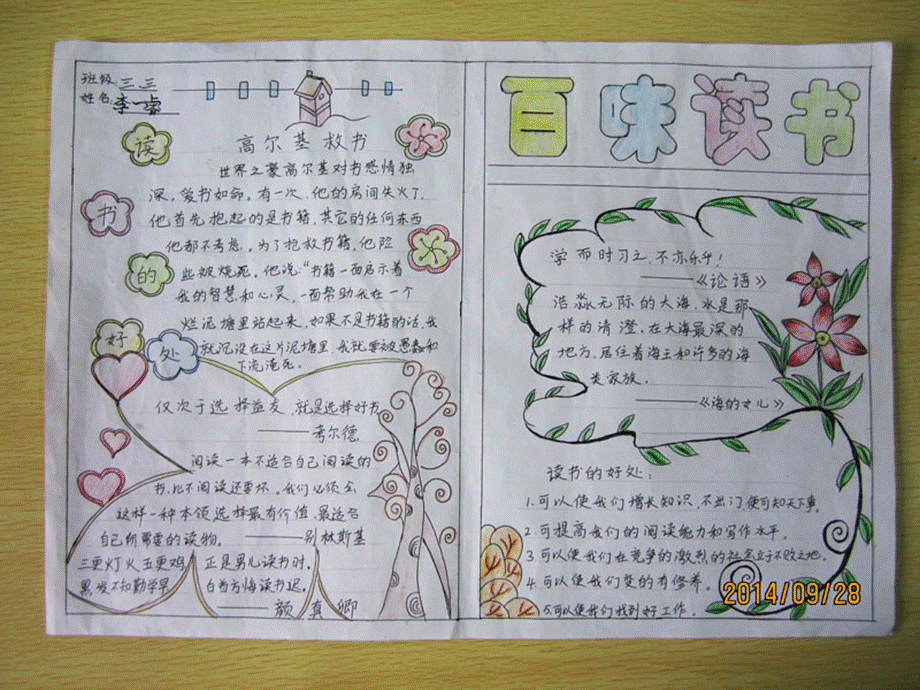 班级:三.三
姓名:李一睿
读
书
的
好
处
高尔基救书
世界之豪高尔基对书感情独
深,爱书如命。有一次,他的房间失火了,
他首先抱起的是书籍,其它的任何东西
他都不考虑。为了抢救书籍,他险
些被烧死。他说:“书籍一面启示着
我的智慧和心灵,一面帮助我在一个
烂泥塘里站起来,如果不是书籍的话,我
就沉没在这片泥塘里,我就要被愚蠢和
下流淹死。
仅次于选择益友,就是选择好书
——考尔德
阅读一本不适合自己阅读的
书,比不阅读还要坏。我们必须会
这样一种本领选择最有价值,最适合
自己所需要的读物。——别林斯基
三更灯火五更鸡 正是男儿读书时.
黑发不知勤学早 白首方悔读书迟.
——颜真卿
百味读书
学而时习之,不亦乐乎!
——《论语》
浩淼无际的大海,水是那
样的清澄。在大海最深的
地方,居住着海王和许多的海
类家族。
——《海的女儿》
读书的好处:
1.可以使我们增长知识,不出门便可知天下事。
2.可提高我们的阅读能力和写作水平。
3.可以使我们在竞争的激烈的社会立于不败之地。
4.可以使我们变的有修养。
5.可以使我们找到好工作。
2014/09/28